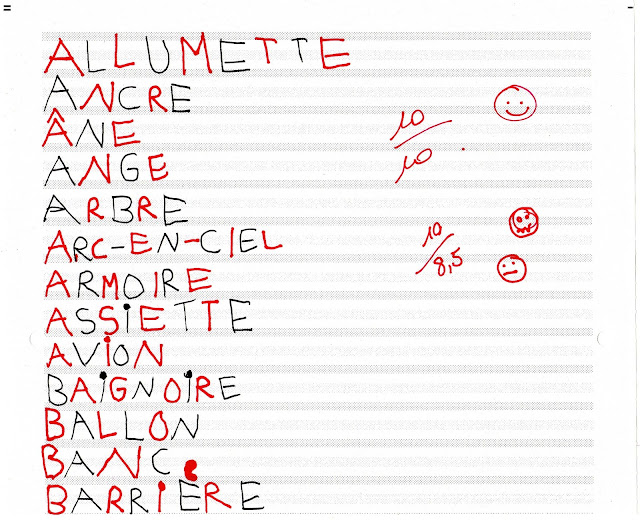 ALLUMETTE
ANCRE
ÂNE
10/10
ANGE
ARBRE
ARC-EN-CIEL
10/8,5
ARMOIRE
ASSiETTE
AViON
BAiGNOiRE
BALLON
BANC
BARRIERE